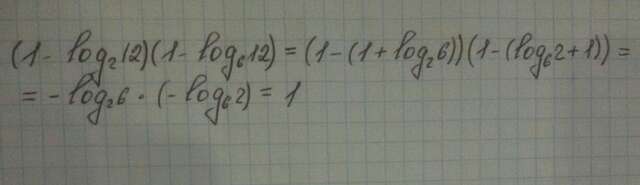 (1 - log₂12)(1 - log₆12) = (1 - (1 + log₂6))(1 - (log₆2 + 1)) =
= - log₂6 · (- log₆2) = 1